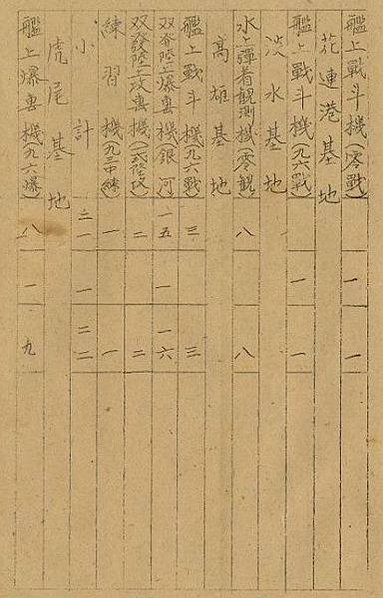 艦上戰斗機(零戰) 一 一
花蓮港基地
艦上戰斗機(九六戰) 一 一
淡水基地
水上弾着観測機(零観) 八 八
高雄基地
艦上戰斗機(九六戰) 三 三
双発陸上爆撃機(銀河) 一五 一 一六
双發陸上攻撃機(一式陸攻) 二 二
練習機(九三中練) 一 一
小計 二一 一 二二
虎尾基地
艦上爆撃機(九六爆) 八 一 九